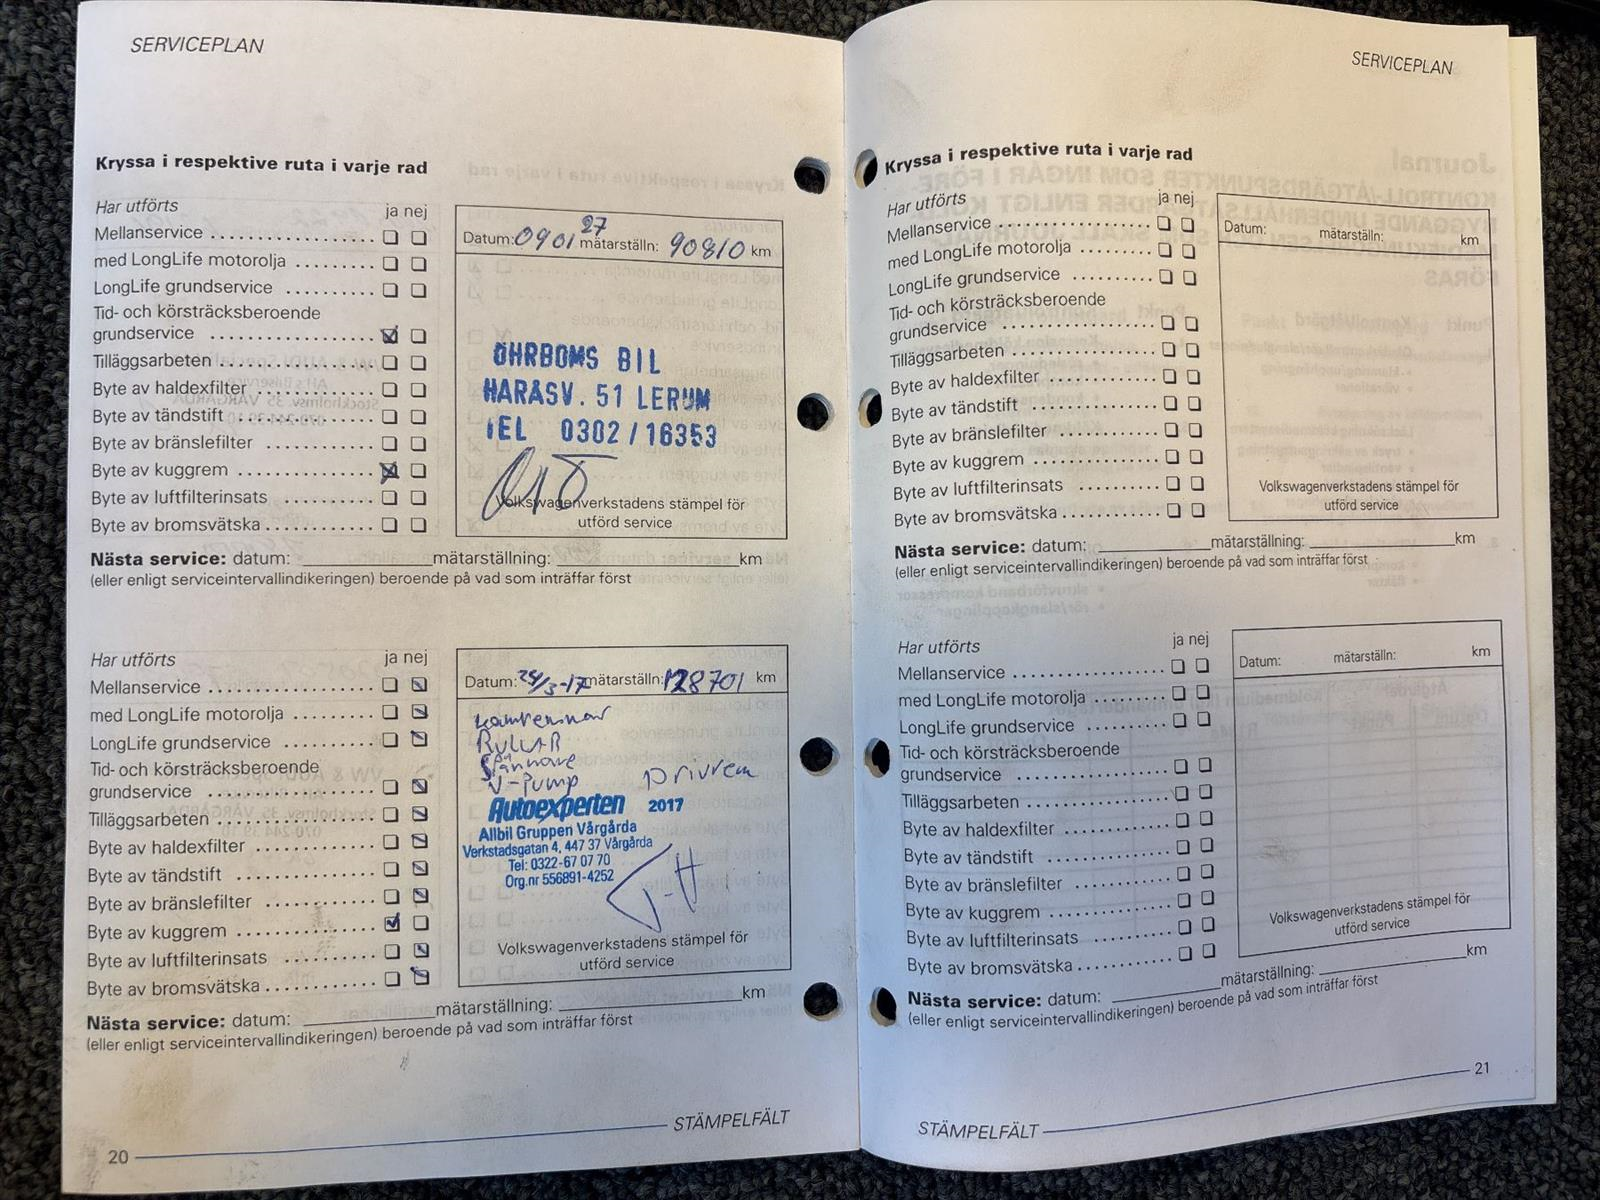 SERVICEPLAN
Kryssa i respektive ruta i varje rad
Har utförts ja nej
Mellanservice
med LongLife motorolja
LongLife grundservice
Tid- och körsträcksberoende
grundservice
Tilläggsarbeten
Byte av haldexfilter
Byte av tändstift
Byte av bränslefilter
Byte av kuggrem
Byte av luftfilterinsats
Byte av bromsvätska
Datum: 090127 mätarställn: 90810 km
ÖHRBOMS BIL
HARÅSV. 51 LERUM
TEL 0302/16353
Volkswagenverkstadens stämpel för
utförd service
Nästa service: datum: mätarställning: km
(eller enligt serviceintervallindikeringen) beroende på vad som inträffar först
Har utförts ja nej
Mellanservice
med LongLife motorolja
LongLife grundservice
Tid- och körsträcksberoende
grundservice
Tilläggsarbeten
Byte av haldexfilter
Byte av tändstift
Byte av bränslefilter
Byte av kuggrem
Byte av luftfilterinsats
Byte av bromsvätska
Datum: 24/3-17 mätarställn: 128701 km
Kamremmar
Rullar
Spännare
V-Pump Drivrem
Autoexperten 2017
Allbil Gruppen Vårgårda
Verkstadsgatan 4, 447 37 Vårgårda
Tel: 0322-67 07 70
Org.nr 556891-4252
Volkswagenverkstadens stämpel för
utförd service
Nästa service: datum: mätarställning: km
(eller enligt serviceintervallindikeringen) beroende på vad som inträffar först
20 STÄMPELFÄLT
SERVICEPLAN
Kryssa i respektive ruta i varje rad
Har utförts ja nej
Mellanservice
med LongLife motorolja
LongLife grundservice
Tid- och körsträcksberoende
grundservice
Tilläggsarbeten
Byte av haldexfilter
Byte av tändstift
Byte av bränslefilter
Byte av kuggrem
Byte av luftfilterinsats
Byte av bromsvätska
Datum: mätarställn: km
Volkswagenverkstadens stämpel för
utförd service
Nästa service: datum: mätarställning: km
(eller enligt serviceintervallindikeringen) beroende på vad som inträffar först
Har utförts ja nej
Mellanservice
med LongLife motorolja
LongLife grundservice
Tid- och körsträcksberoende
grundservice
Tilläggsarbeten
Byte av haldexfilter
Byte av tändstift
Byte av bränslefilter
Byte av kuggrem
Byte av luftfilterinsats
Byte av bromsvätska
Datum: mätarställn: km
Volkswagenverkstadens stämpel för
utförd service
Nästa service: datum: mätarställning: km
(eller enligt serviceintervallindikeringen) beroende på vad som inträffar först
21
STÄMPELFÄLT